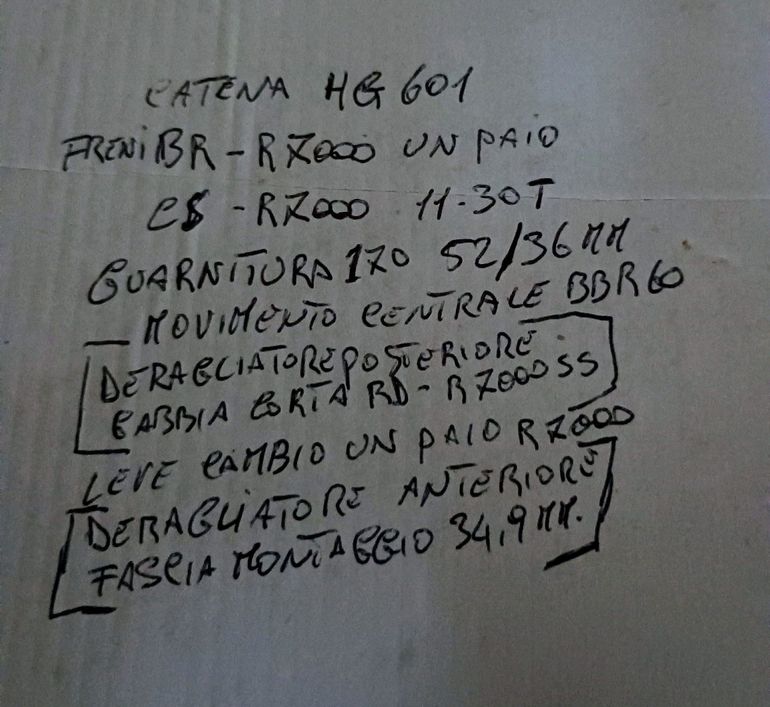 CATENA HG 601
FRENI BR - R7000 UN PAIO
CS - R7000 11-30T
GUARNITURA 170 52/36 MM
MOVIMENTO CENTRALE BBR60
DERAGLIATORE POSTERIORE
GABBIA CORTA RD - R7000 SS
LEVE CAMBIO UN PAIO R7000
DERAGLIATORE ANTERIORE
FASCIA MONTAGGIO 34,9 MM.